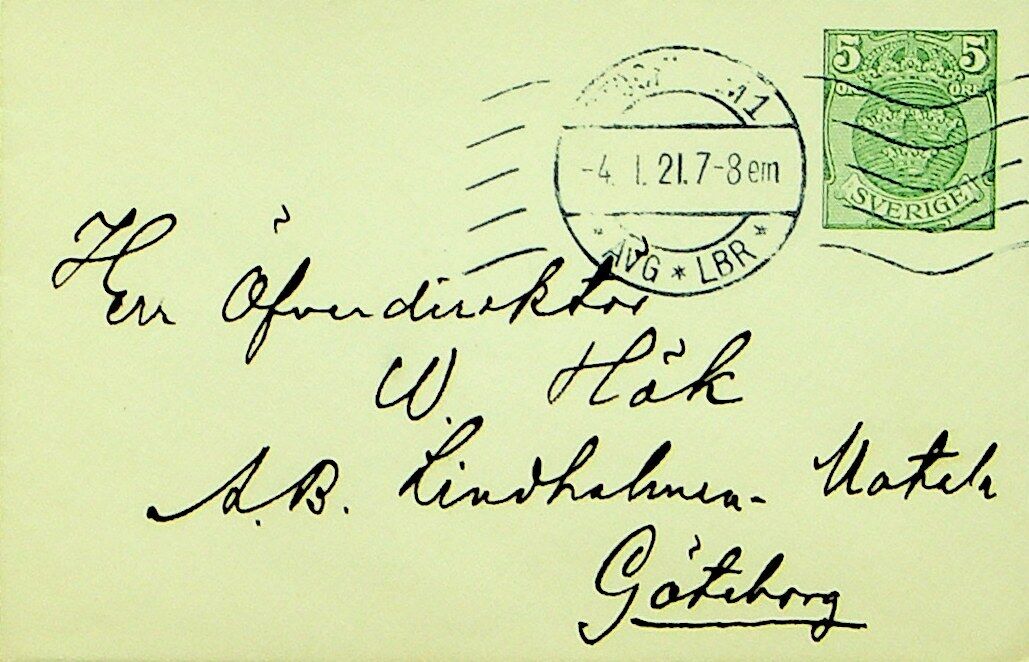 5 5
ÖRE ÖRE
SVERIGE
M1
-4. 1. 21. 7-8 em
* AVG * LBR *
Herr Öfverdirektör
W. Hök
A.B. Lindholmen-Motala
Göteborg